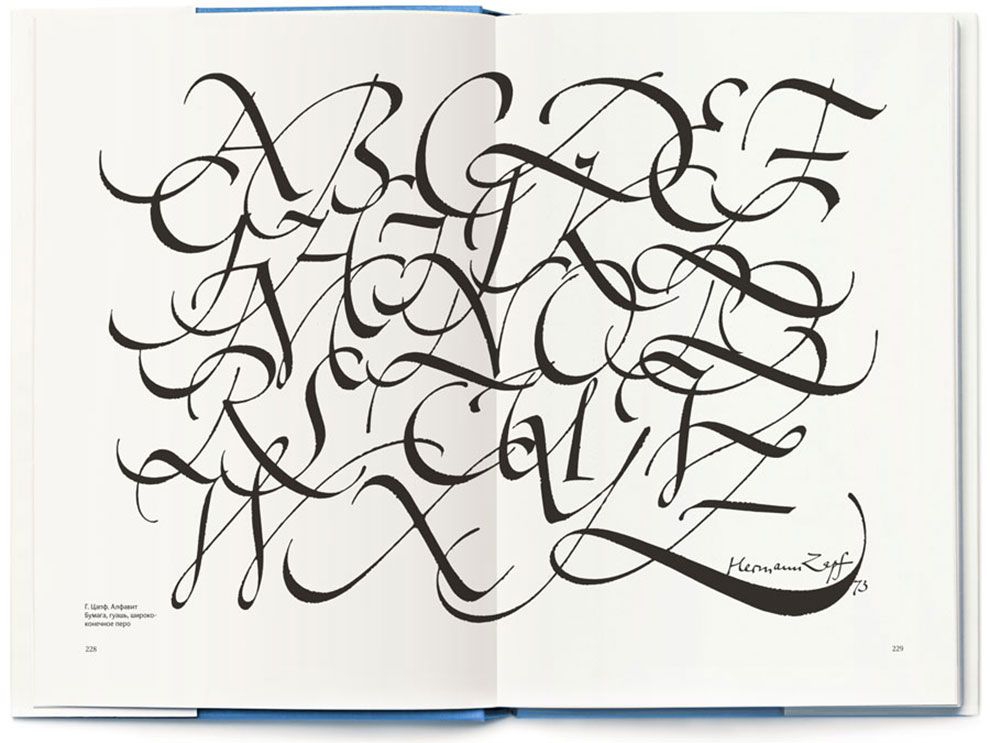 A B C D E F
G H I J K L
M N O P Q
R S T U V
W X Y Z
Hermann Zapf
73
Г. Цапф. Алфавит
Бумага, гуашь, широко-
конечное перо
228
229